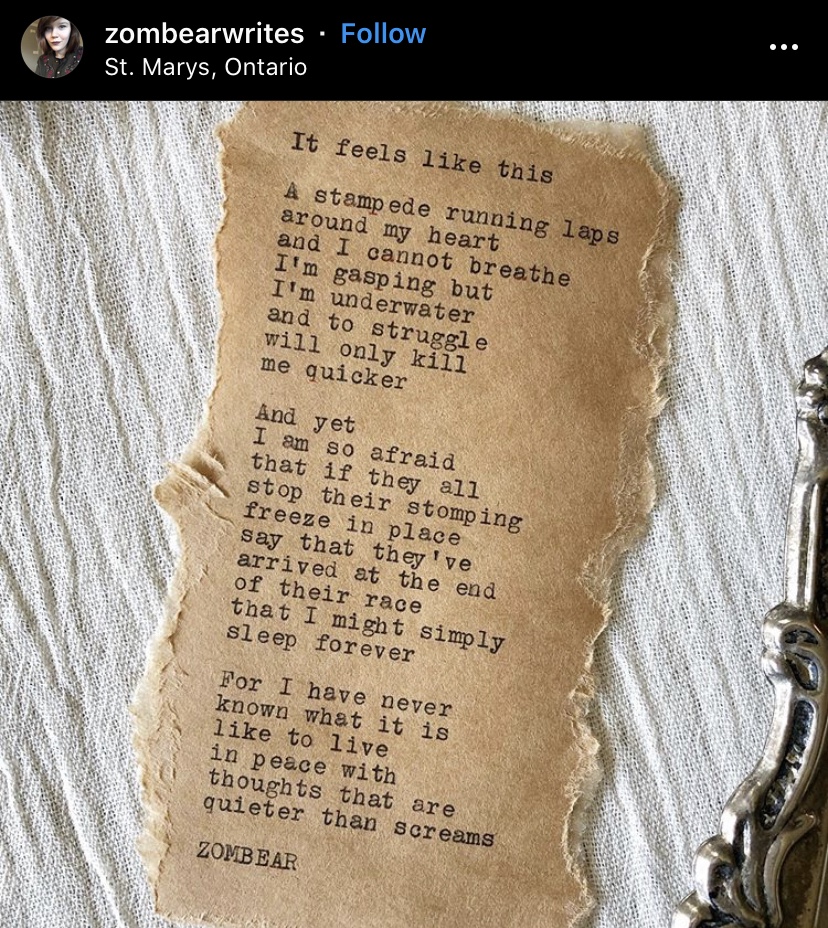 zombearwrites · Follow
St. Marys, Ontario
It feels like this
A stampede running laps
around my heart
and I cannot breathe
I'm gasping but
I'm underwater
and to struggle
will only kill
me quicker
And yet
I am so afraid
that if they all
stop their stomping
freeze in place
say that they've
arrived at the end
of their race
that I might simply
sleep forever
For I have never
known what it is
like to live
in peace with
thoughts that are
quieter than screams
ZOMBEAR